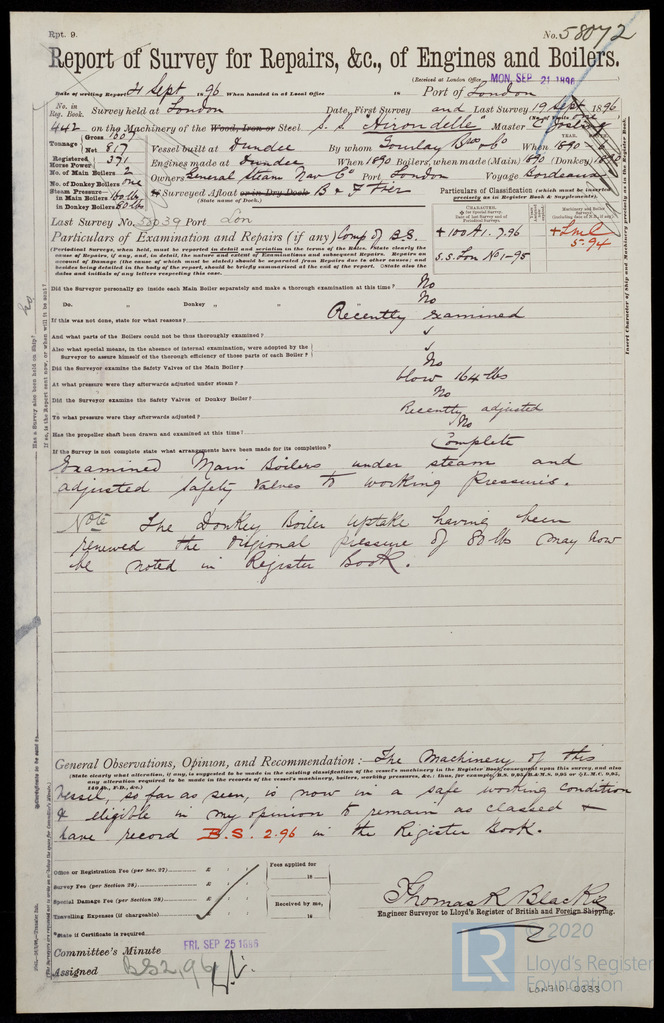 Rpt. 9.
No. 58072
Report of Survey for Repairs, &c., of Engines and Boilers.
(Received at London Office MON. SEP 21 1896
Date of writing Report 21 Sept 1896 When handed in at Local Office 18 Port of London
No. in Reg. Book. Survey held at London Date, First Survey and Last Survey 19 Sept 1896
442 on the Machinery of the Wood, Iron or Steel S.S. "Hirondelle" Master
Tonnage Gross 1607 Net 817 Vessel built at Dundee By whom Gourlay Bros & Co When 1890
Registered Horse Power 371 Engines made at Dundee When 1890 Boilers, when made (Main) 1890 (Donkey) 1890
No. of Main Boilers 2 Owners General Steam Nav Co Port London Voyage Bordeaux
No. of Donkey Boilers One
Steam Pressure in Main Boilers 160 lbs in Donkey Boilers 80 lbs
If Surveyed Afloat or in Dry Dock
(State name of Dock.)
Particulars of Classification (which must be inserted precisely as in Register Book & Supplements).
Last Survey No. 58039 Port Lon
+ 100A1. 7.96
+ LMC 5.94
S.S. Lon No 1-95
Particulars of Examination and Repairs (if any) Comp of B.S.
(Periodical Surveys, when held, must be reported in detail and seriatim in the terms of the Rules. State clearly the cause of Repairs, if any, and, in detail, the nature and extent of Examinations and subsequent Repairs. Repairs on account of Damage (the cause of which must be stated) should be separated from Repairs due to other causes; and besides being detailed in the body of the report, should be briefly summarised at the end of the report.
Did the Surveyor personally go inside each Main Boiler separately and make a thorough examination at this time? No
Do. " Donkey " " " No
If this was not done, state for what reasons? Recently examined
And what parts of the Boilers could not be thus thoroughly examined? ✓
Also what special means, in the absence of internal examination, were adopted by the Surveyor to assure himself of the thorough efficiency of those parts of each Boiler? ✓
Did the Surveyor examine the Safety Valves of the Main Boiler? No
At what pressure were they afterwards adjusted under steam? blow 164 lbs
Did the Surveyor examine the Safety Valves of Donkey Boiler? No
To what pressure were they afterwards adjusted? Recently adjusted
Has the propeller shaft been drawn and examined at this time? No
If the Survey is not complete state what arrangements have been made for its completion? Complete
Examined Main Boilers under steam and
adjusted safety valves to working pressures.
Note The Donkey Boiler uptake having been
renewed the origional pressure of 80 lbs may now
be noted in Register Book.
General Observations, Opinion, and Recommendation:- The Machinery of this
(State clearly what alteration, if any, is suggested to be made in the existing classification of the vessel's machinery in the Register Book, consequent upon this survey, and also any alteration required to be made in the records of the vessel's machinery, boilers, working pressures, &c.: thus, for example, B.S. 9,95, B.&M.S. 9,95 or + L.M.C. 9,95, 140 lb., F.D., &c.)
vessel, so far as seen, is now in a safe working condition
& eligible in my opinion to remain as classed &
have record B.S. 2.96 in the Register Book.
Office or Registration Fee (per Sec. 27) £ Fees applied for
Survey Fee (per Section 28) £ 18
Special Damage Fee (per Section 28) £ Received by me,
Travelling Expenses (if chargeable) £ 18
Thomas R Blackie
Engineer Surveyor to Lloyd's Register of British and Foreign Shipping.
*State if Certificate is required
Committee's Minute FRI. SEP 25 1896
Assigned BS 2,96
© 2020
LR Lloyd's Register Foundation
LON710-0333